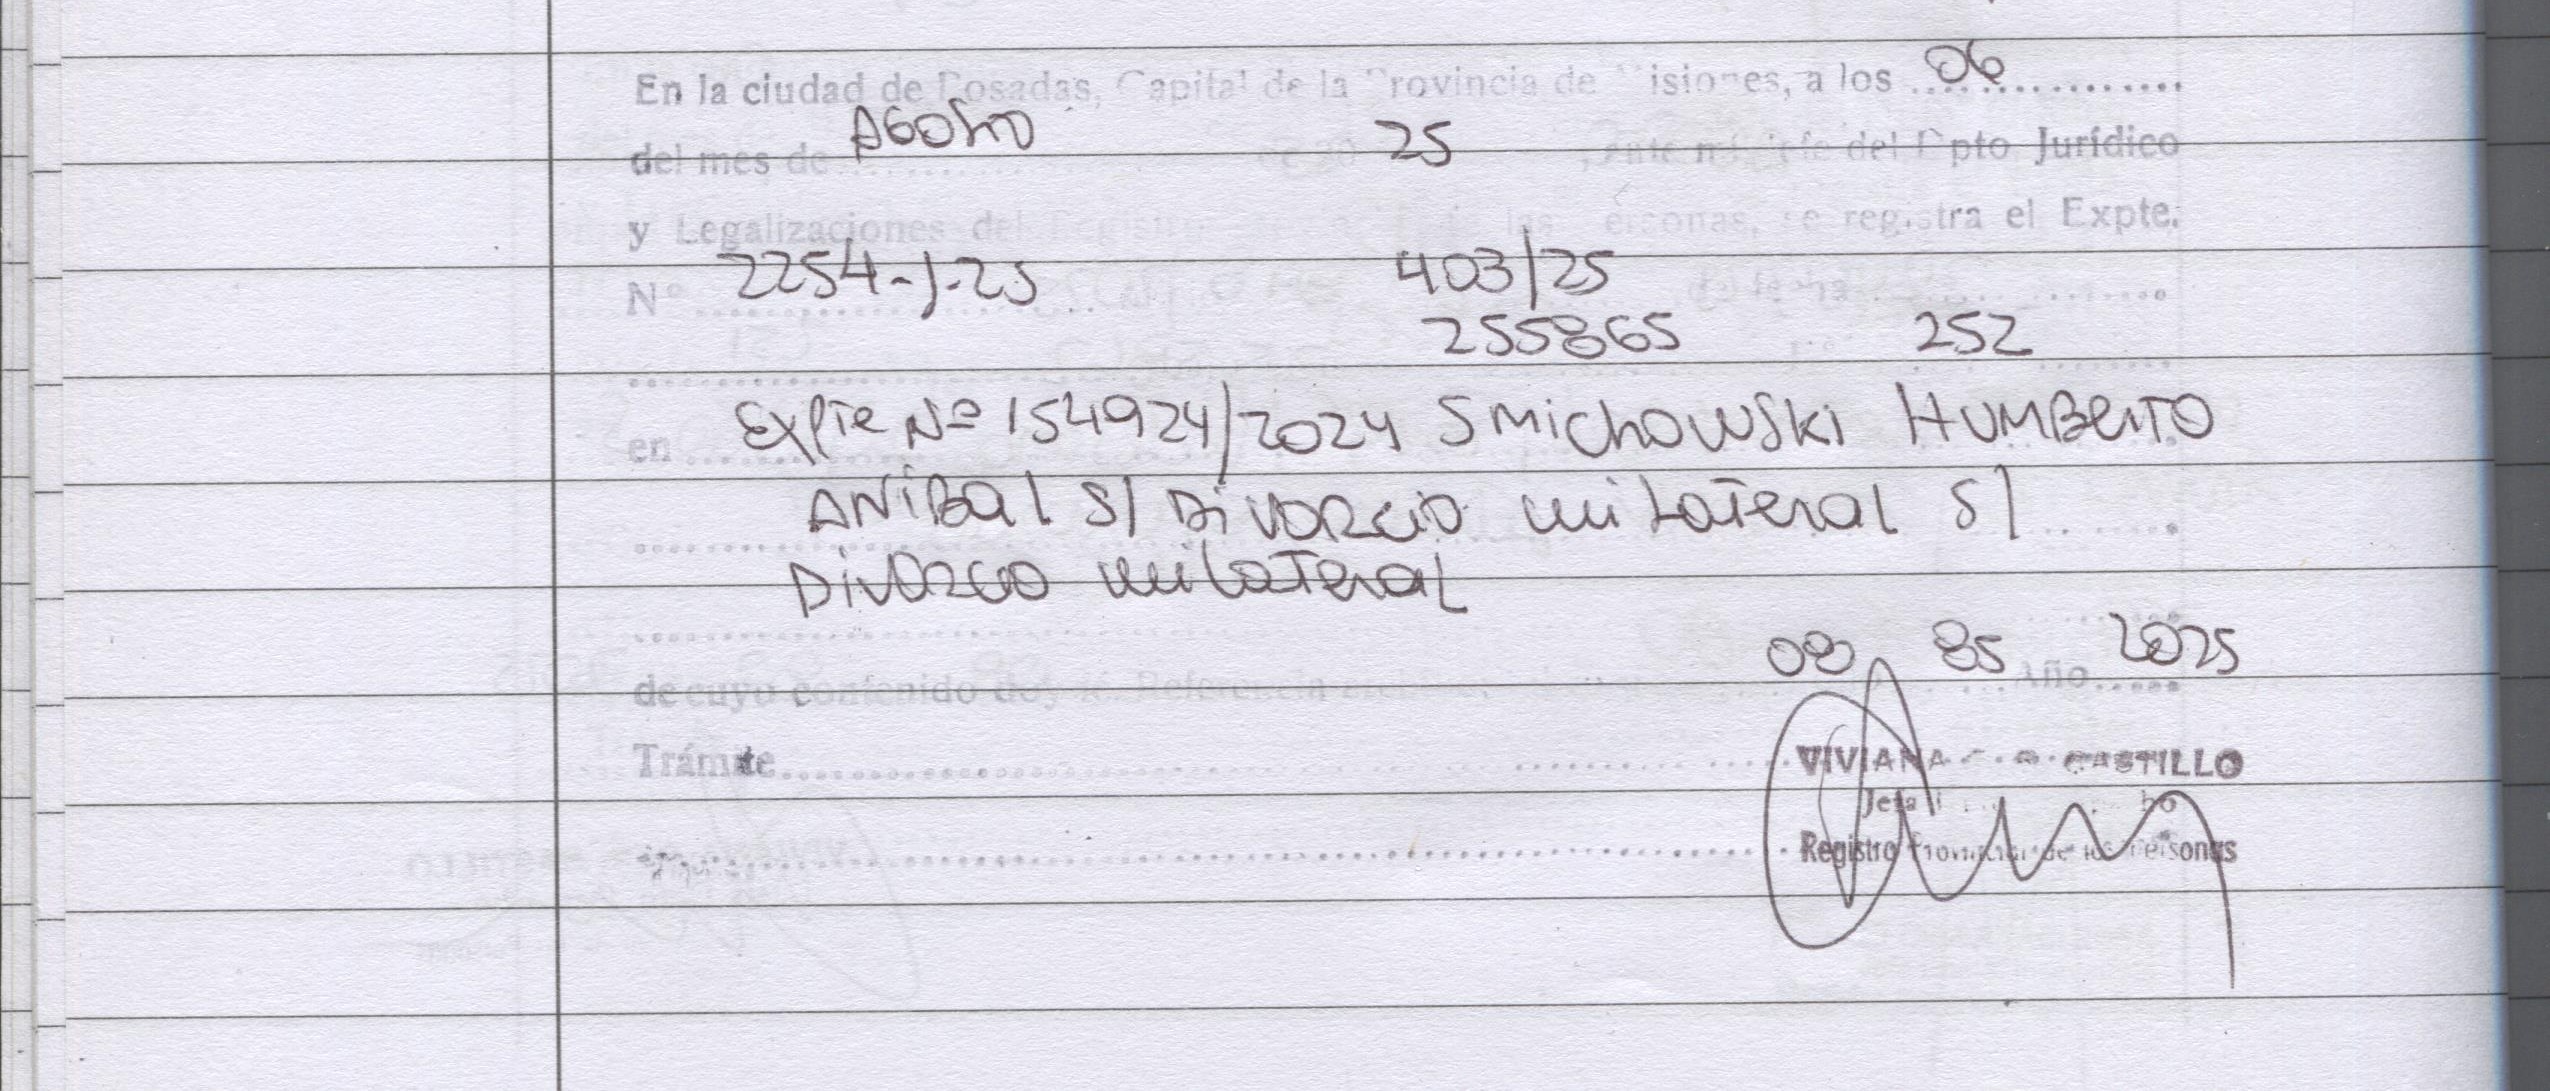 En la ciudad de Posadas, Capital de la Provincia de Misiones, a los 06
del mes de Agosto de 20 25, ante mi, jefe del Dpto Jurídico
y Legalizaciones del Registro las Personas, se registra el Expte.
Nº 2254-J-25 403/25 de fecha
255865 252
en Expte Nº 154924/2024 SMichowski HUMBERTO
ANIBal S/ DiVORCio uniLateral S/
DiVORCio unilateral
08 85 2025
de cuyo contenido doy fé. Referencia Año
Trámite
VIVIANA CASTILLO
Jefa
Registro Provincial de las Personas